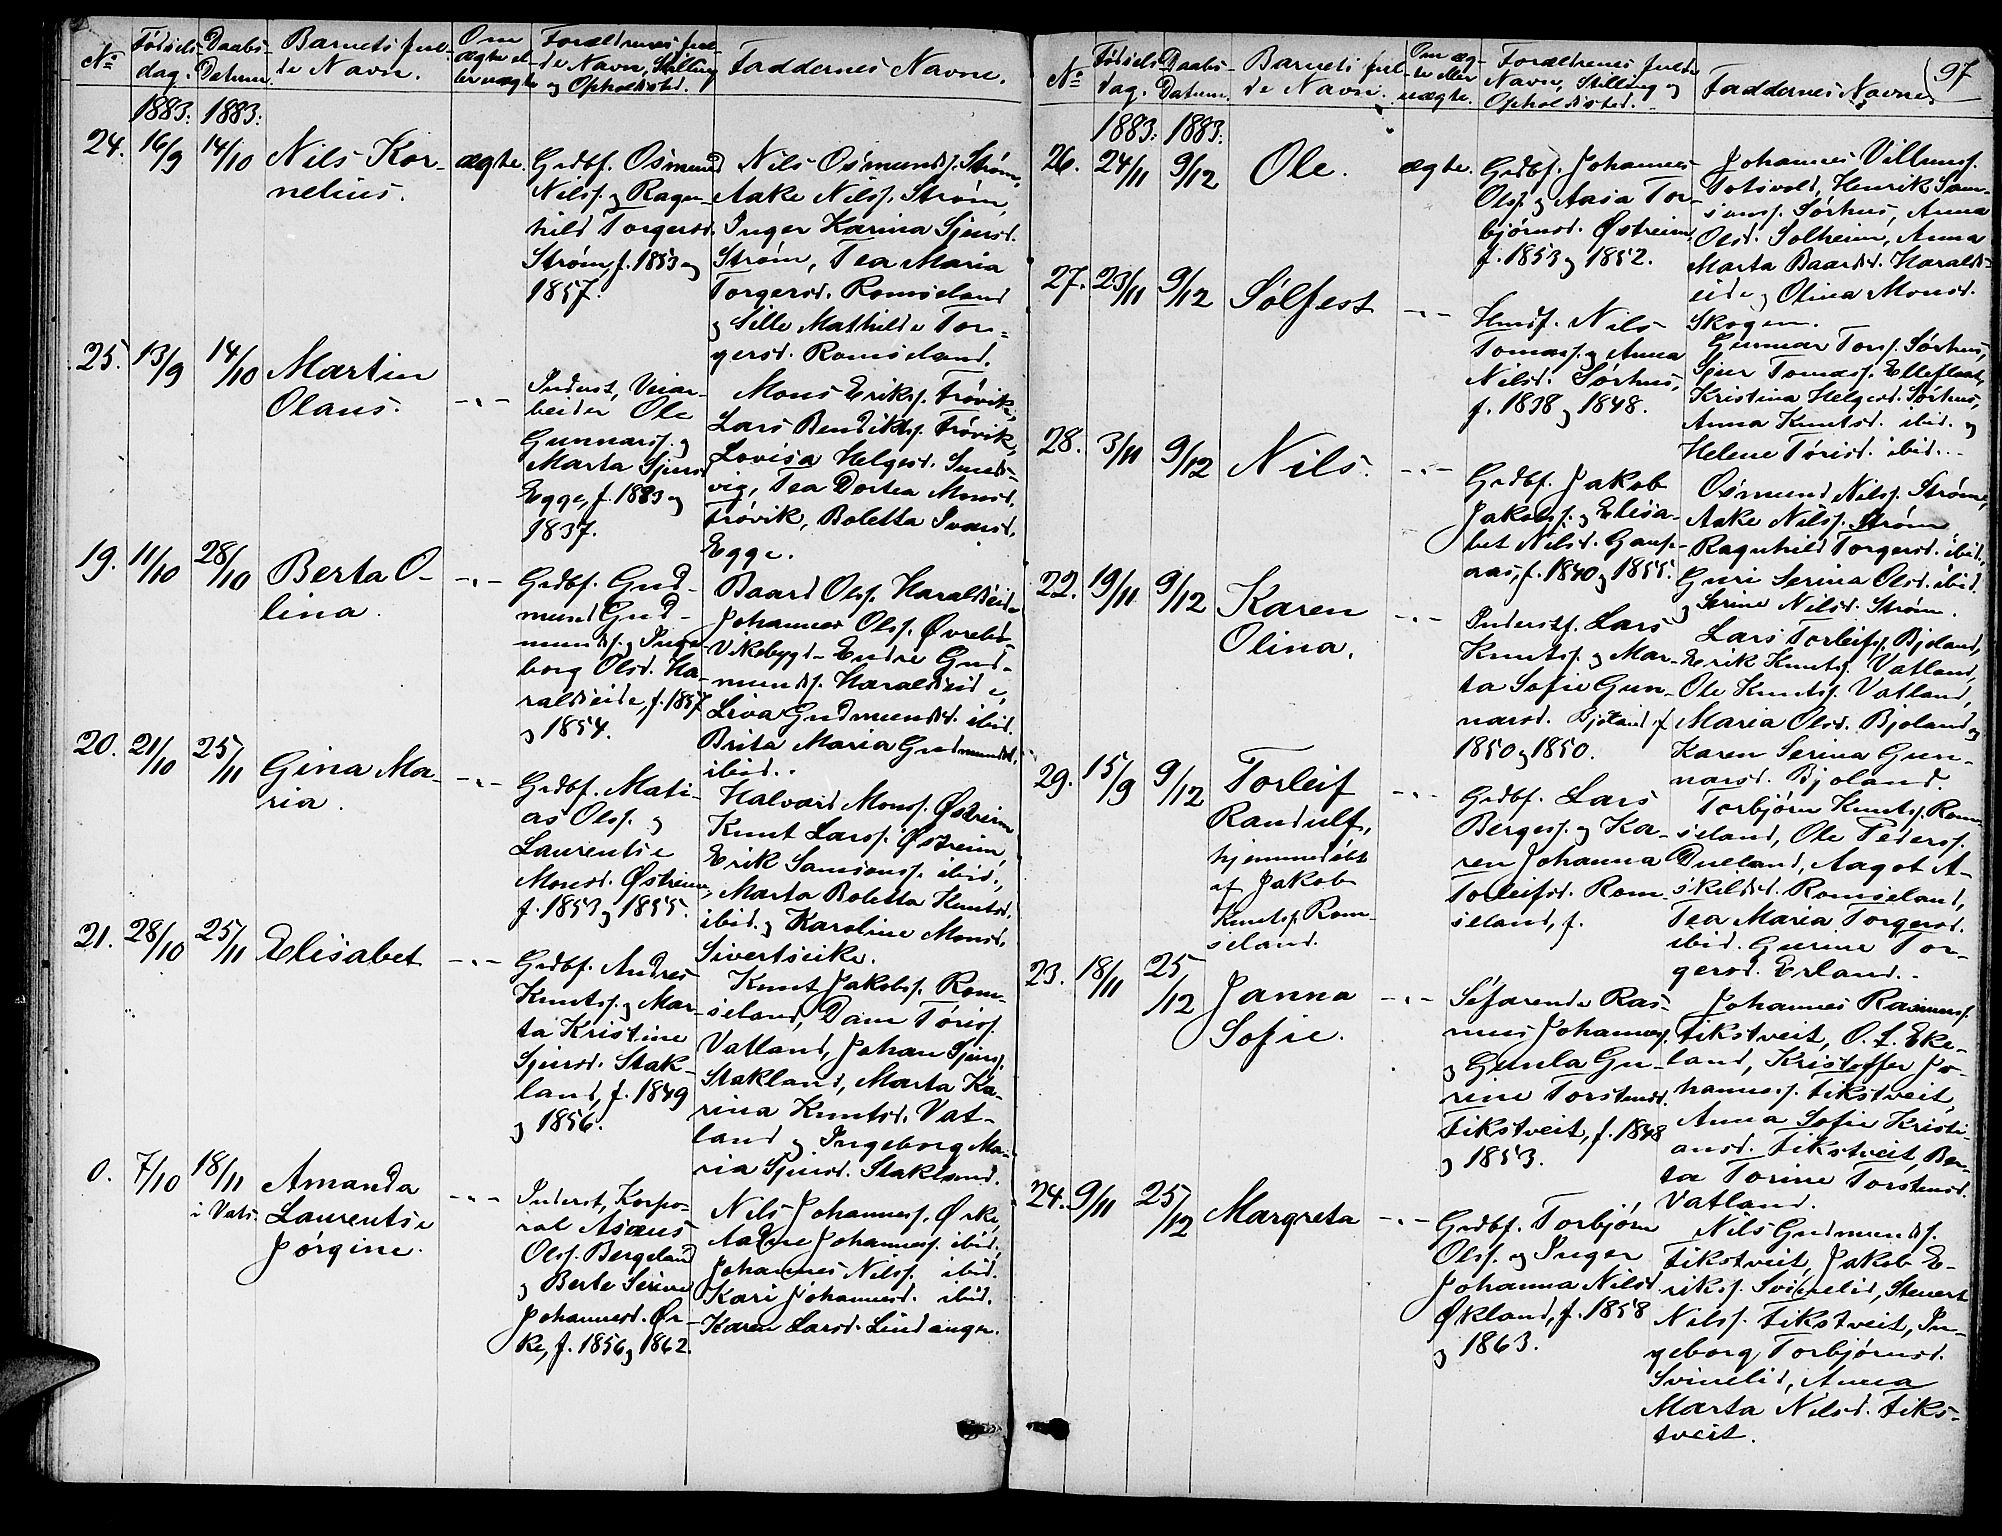 No
Fødsels-
dag.
Daabs-
Datum.
Barnets ful-
de Navn.
Om
ægte el-
ler uægte
Forældrenes ful-
de Navn, Stilling
og Opholdssted.
Faddernes Navne.
1883. 1883.
24. 16/9 14/10
Nils Kor-
nelius.
ægte.
Grdbf. Osmund
Nilss. og Ragn-
hild Torgersd.
Strøm, f. 1853 og
1857.
Nils Osmunds. Strøm,
Aake Nilss. Strøm,
Inger Karina Sjursd.
Strøm, Tea Maria
Torgersd. Romseland
og Sille Mathilde Tor-
gersd. Romseland.
25. 13/9 14/10
Martin
Olaus.
-"-
Inderst, Veiar-
beider Ole
Gunnarss. og
Marta Sjursd.
Egge, f. 1883 og
1837.
Mons Erikss. Frøvik,
Lars Bendiktss. Frøvik,
Lovisa Helgesd. Smeds-
vig, Tea Dortea Monsd.
Frøvik, Boletta Ivarsd.
Egge.
19. 11/10 28/10
Berta O-
lina.
-"-
Grdbf. Gud-
mund Gud-
munds. og Inge-
borg Olsd. Ha-
raldseide, f. 1857
og 1854.
Baard Olss. Haraldseide
Johannes Olss. Øvrebø
Vikebygd- Endre Gud-
munds. Haraldseide,
Liva Gudmundsd. ibid.
Brita Maria Gudmundsd.
ibid.
20. 21/10 25/11
Gina Ma-
ria.
-"-
Grdbf. Mati-
as Olss. og
Laurentse
Monsd. Østreim,
f. 1853 og 1855.
Halvard Monss. Østreim
Knut Larss. Østreim,
Erik Samsonss. ibid.,
Marta Boletta Knutsd.
ibid. og Karoline Monsd.
Sivertseike.
21. 28/10 25/11
Elisabet
-"-
Grdbf. Andres
Knuts. og Mar-
ta Kristine
Sjursd. Stak-
land, f. 1849
og 1856.
Knut Jakobss. Rom-
seland, Dam Toriss.
Vatland, Johan Sjurss.
Stakland, Marta Ka-
rina Knutsd. Vat-
land og Ingeborg Ma-
ria Sjursd. Stakland.
0. 7/10 18/11
i Vats.
Amanda
Laurentse
Jørgine.
-"-
Inderst, Korpo-
ral Asseus
Olss. Bergeland
og Berte Serine
Johannesd. Ør-
ke, f. 1856 og 1862.
Nils Johanness. Ørke,
Aadne Johanness. ibid.
Johannes Nilss. ibid.
Kari Johannesd. ibid.
Karen Larsd. Lindanger.
97
No
Fødsels-
dag.
Daabs-
Datum.
Barnets ful-
de Navn.
Om æg-
te eller
uægte.
Forældrenes fulde
Navn, Stilling og
Opholdssted.
Faddernes Navne
1883. 1883.
26. 24/11 9/12
Ole.
ægte.
Grdbf. Johannes
Olss. og Aasa Tor-
bjørnsd. Østreim,
f. 1853 og 1852.
Johannes Villumss.
Totsvold, Henrik Sam-
sonss. Sørhus, Anna
Olsd. Solheim, Anna
Marta Baardsd. Haralds-
eide og Olina Monsd.
Skogen.
27. 23/11 9/12
Sølfest
-"-
Husf. Nils
Tomass. og Anna
Nilsd. Sørhus,
f. 1838 og 1848.
Gunnar Torss. Sørhus,
Sjur Tomass. Elleflaat,
Kristina Helgesd. Sørhus,
Anna Knutsd. ibid. og
Helene Torisd. ibid.
28. 3/11 9/12
Nils.
-"-
Grdbf. Jakob
Jakobss. og Elisa-
bet Nilsd. Gaup-
aas, f. 1840 og 1855.
Osmund Nilss. Strøm,
Aake Nilss. Strøm
Ragnhild Torgersd. ibid.
Guri Serina Olsd. ibid.
og Serine Nilsd. Strøm.
22. 19/11 9/12
Karen
Olina.
-"-
Inderstf. Lars
Knutss. og Mar-
ta Sofie Gun-
narsd. Bjoland f.
1850 og 1850.
Lars Torleifss. Bjoland,
Erik Knutss. Vatland,
Ole Knutss. Vatland,
Maria Olsd. Bjoland og
Karen Serina Gun-
narsd. Bjoland.
29. 15/9 9/12
Torleif
Randulf,
hjemmedøbt
af Jakob
Knutss. Rom-
seland.
-"-
Grdbf. Lars
Bergess. og Ka-
ren Johanna
Torleifsd. Rom-
seland, f.
Torbjørn Knutss. Rom-
seland, Ole Pederss.
Dueland, Aagot A-
skildsd. Romseland,
Tea Maria Torgersd.
ibid. Gurine Tor-
gersd. Erland.
23. 18/11 25/12
Janna
Sofie.
-"-
Søfarende Ras-
mus Johanness.
og Gunla Gu-
rine Torstensd.
Fikstveit, f. 1848
og 1853.
Johannes Rasmuss.
Fikstveit, O. L. Eke-
land, Kristoffer Jo-
hanness. Fikstveit,
Anna Sofie Kristi-
ansd. Fikstveit, Ber-
ta Torine Torstensd.
Vatland.
24. 9/11 25/12
Margreta
-"-
Grdbf. Torbjørn
Olss. og Inger
Johanna Nilsd.
Økland, f. 1858
og 1863.
Nils Gudmunds.
Fikstveit, Jakob E-
rikss. Svinelid, Stenert
Nilss. Fikstveit, In-
geborg Torbjørnsd.
Svinelid, Anna
Marta Nilsd. Fiks-
tveit.